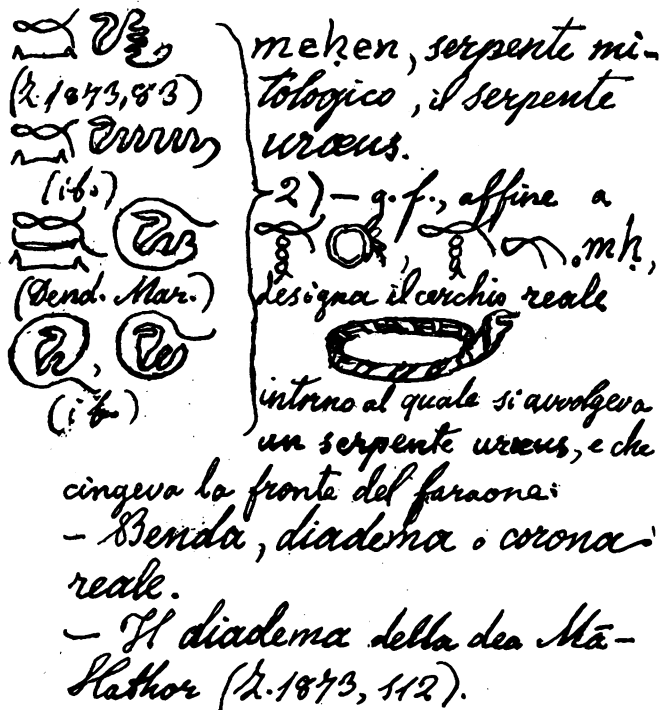 meḥen, serpente mi-
(Z.1873,83)
tologico, il serpente
uræus.
(ib.)
2) — g.f., affine a
, . mḥ,
(Dend. Mar.)
designa il cerchio reale
,
intorno al quale si avvolgeva
(ib.)
un serpente uræus, e che
cingeva la fronte del faraone:
— Benda, diadema o corona
reale.
— Il diadema della dea Mā-
Hathor (Z.1873, 112).